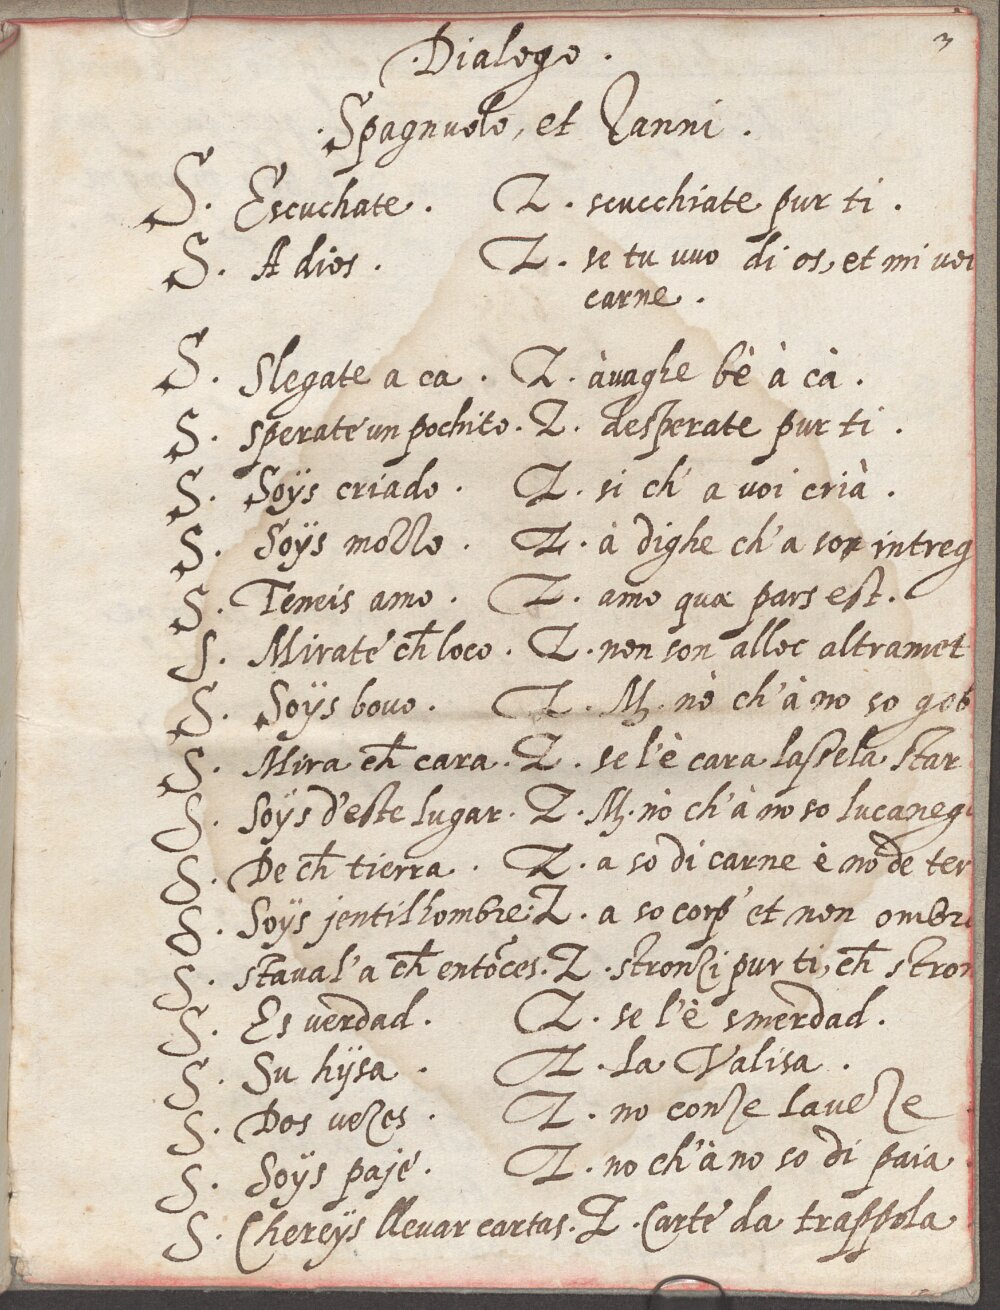 3
Dialogo.
Spagnuolo, et Zanni.
S. Escuchate. Z. scucchiate pur ti.
S. A dios. Z. se tu vuo di os, et mi voi
carne.
S. Slegate a ca. Z. àvaghe bè à cà.
S. sperate un pochito. Z. desperate pur ti.
S. Soÿs criado. Z. si ch' a voi crià.
S. Soÿs mozzo. Z. à dighe ch'a son intreg
S. Teneis amo. Z. amo quæ pars est.
S. Mirate ch̃ loco. Z. non son alloc altramet
S. Soÿs bouo. Z. M. nò ch'à no so gob
S. Mira ch̃ cara. Z. se l'è cara lassela star
S. Soÿs d'este lugar. Z. M. nò ch'à no so lucaneg
S. De ch̃ tierra. Z. a so di carne è nõ de ter
S. Soÿs jentilhombre: Z. a so corp' et non ombr
S. staual'a ch̃ entõces. Z. stronzi pur ti, ch̃ stron
S. Es verdad. Z. se l'è smerdad.
S. Su hÿsa. Z. La Valisa.
S. Dos vezes. Z. no conze laveze
S. Soÿs paje. Z. no ch'à no so di paia
S. Chereÿs llevar cartas. Z. Carte da trappola